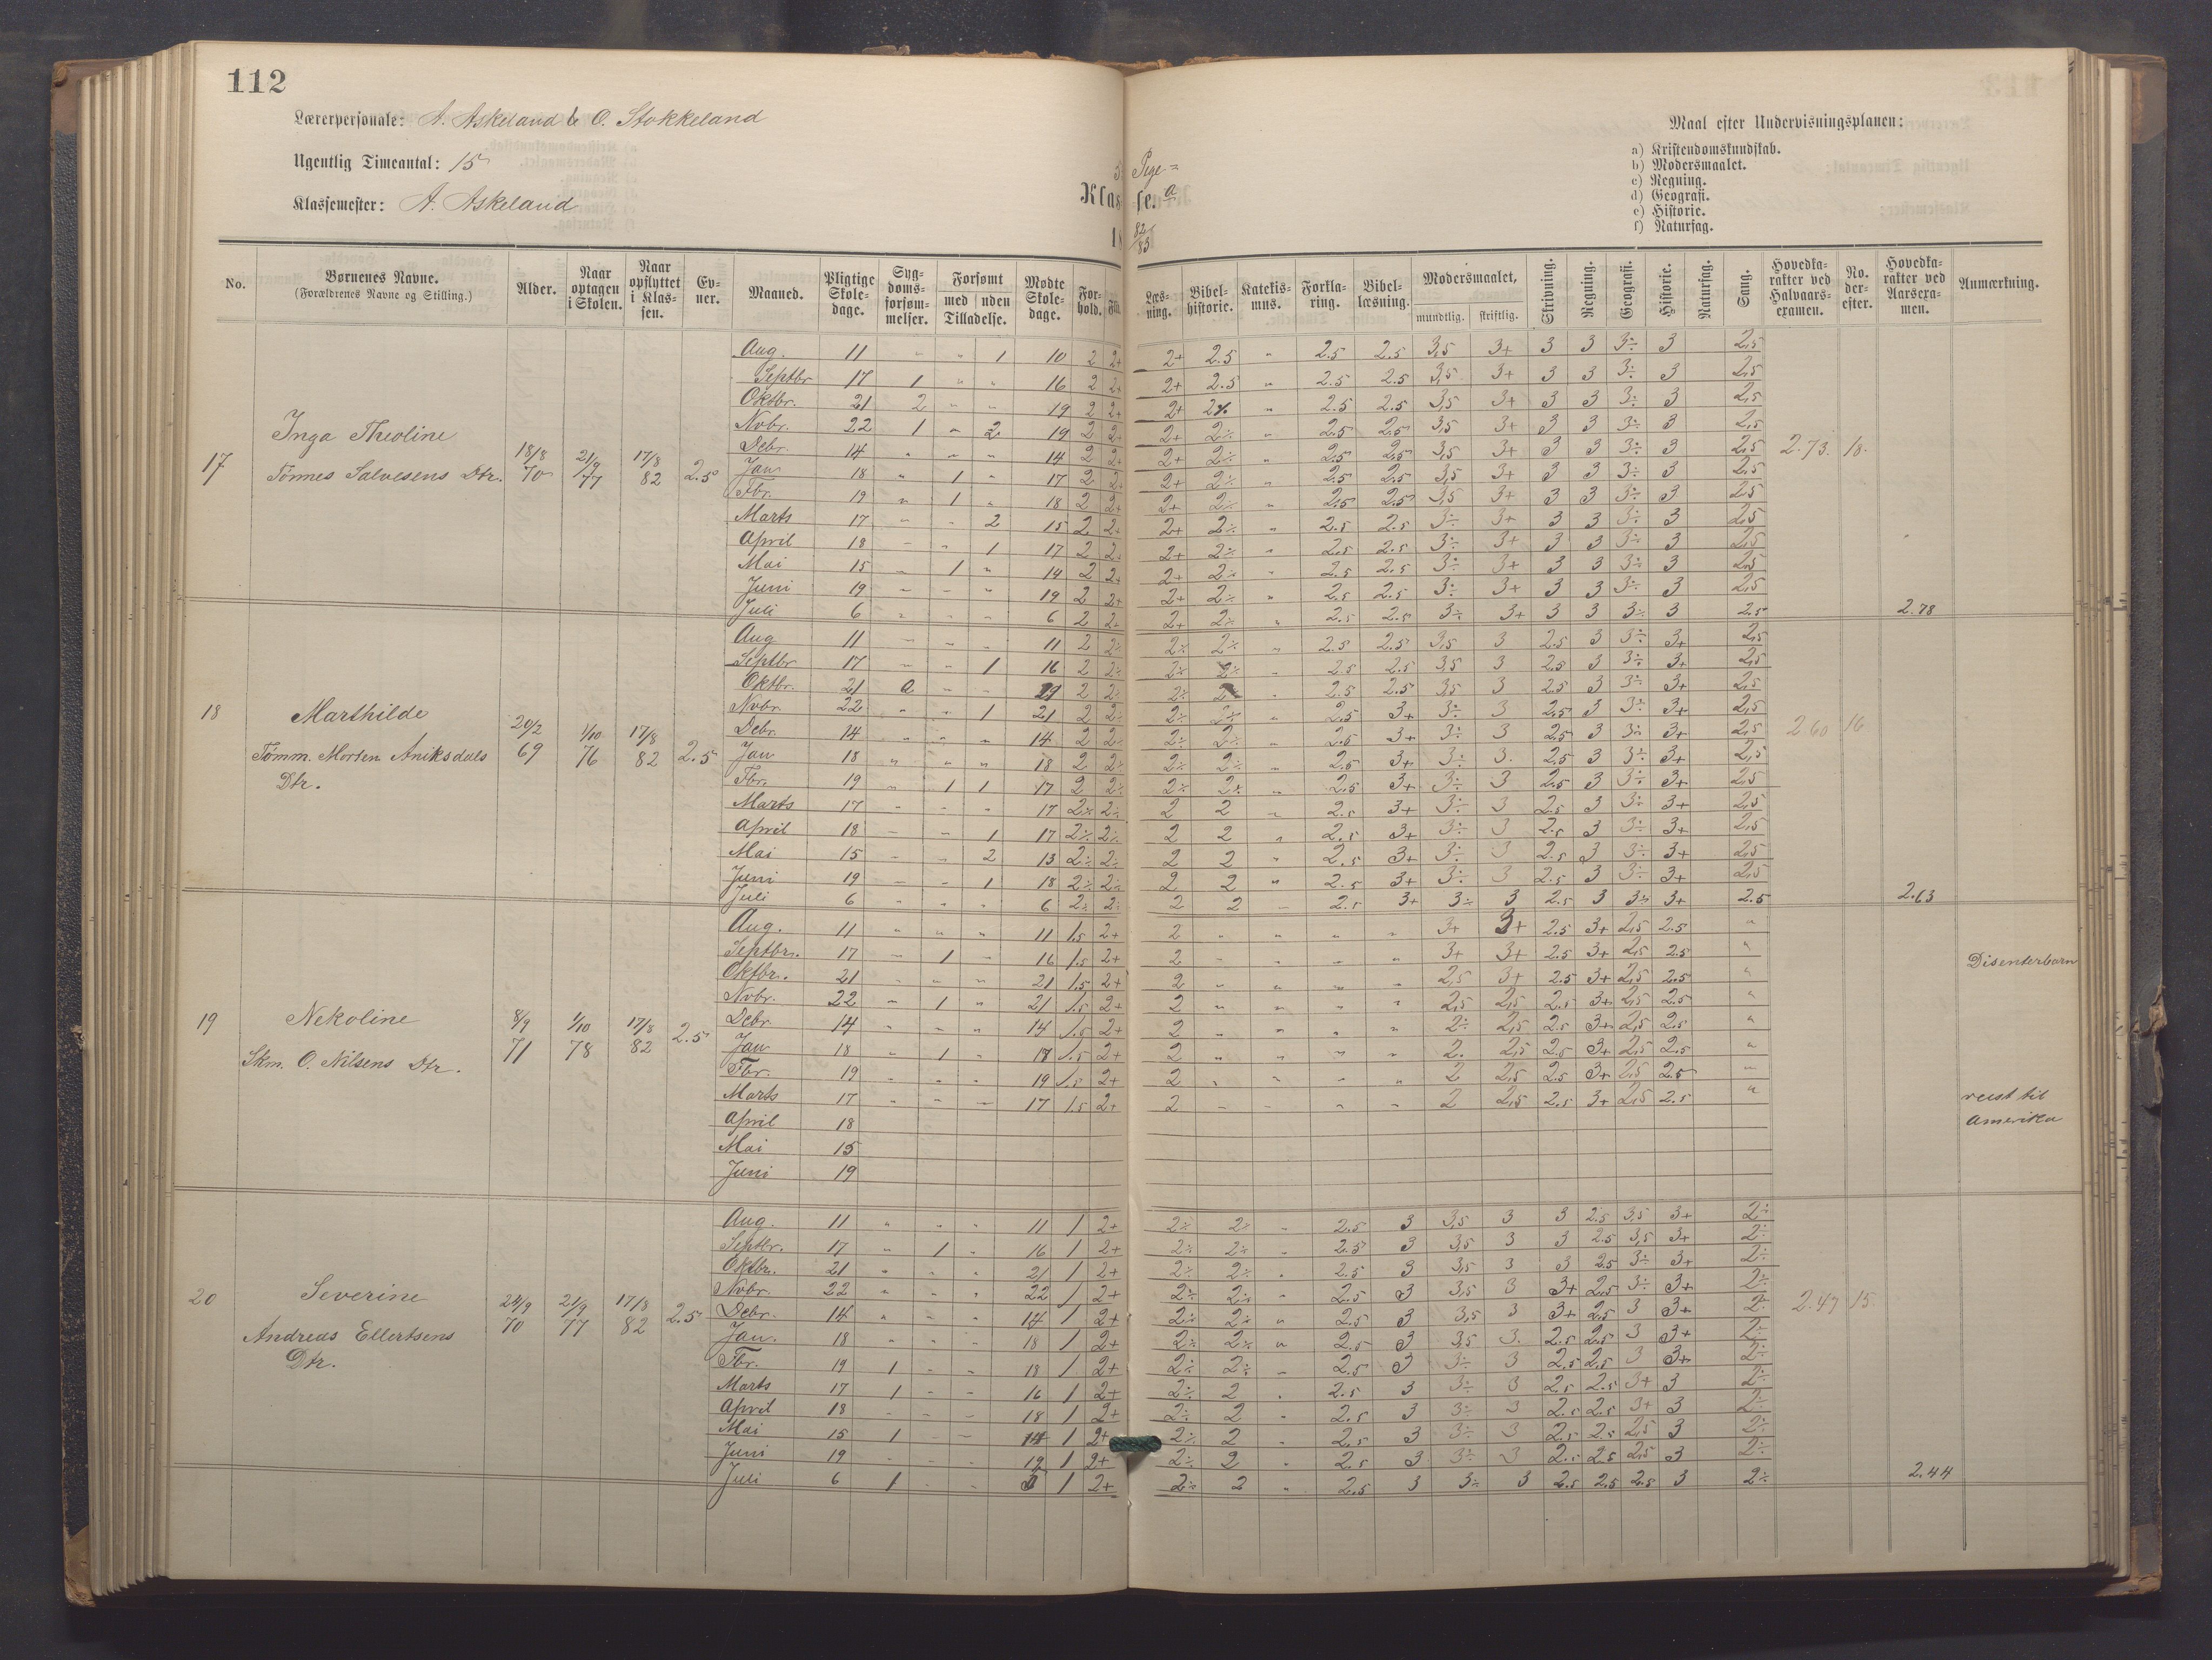 112
Lærerpersonale: A. Askeland & O. Stokkeland
Ugentlig Timeantal: 15
Klassemester: A. Askeland
5 Pige=
Klasse. a
18 82/83
Maal efter Undervisningsplanen:
a) Kristendomskundskab.
b) Modersmaalet.
c) Regning.
d) Geografi.
e) Historie.
f) Naturfag.
No. | Børnenes Navne. (Forældrenes Navne og Stilling.) | Alder. | Naar optagen i Skolen. | Naar opflyttet i Klassen. | Evner. | Maaned. | Pligtige Skoledage. | Sygdomsforsømmelser. | Forsømt med Tilladelse. | Forsømt uden Tilladelse. | Mødte Skoledage. | Forhold. | Flid. | Læsning. | Bibelhistorie. | Katekismus. | Forklaring. | Bibellæsning. | Modersmaalet, mundtlig. | skriftlig. | Skrivning. | Regning. | Geografi. | Historie. | Naturfag. | Sang. | Hovedkarakter ved Halvaarsexamen. | No. derefter. | Hovedkarakter ved Aarsexamen. | Anmærkning.
17 Inga Theoline
Tönnes Salvesens Dtr. 18/8 70 21/9 77 17/8 82 2.5
Aug. 11 " " 1 10 2 2+ 2+ 2.5 " 2.5 2.5 3,5 3+ 3 3 3÷ 3 2,5
Septbr 17 1 " " 16 2 2+ 2+ 2.5 " 2.5 2.5 3,5 3+ 3 3 3÷ 3 2,5
Oktbr. 21 2 " " 19 2 2+ 2+ 2÷ " 2.5 2.5 3,5 3+ 3 3 3÷ 3 2,5
Nvbr. 22 1 " 2 19 2 2+ 2+ 2÷ " 2.5 2.5 3,5 3+ 3 3 3÷ 3 2,5
Debr. 14 " " " 14 2 2+ 2+ 2÷ " 2.5 2.5 3,5 3+ 3 3 3÷ 3 2,5 2.73. 18.
Jan 18 " 1 " 17 2 2+ 2+ 2÷ " 2.5 2.5 3,5 3+ 3 3 3÷ 3 2,5
Fbr. 19 " 1 " 18 2 2+ 2+ 2÷ " 2.5 2.5 3,5 3+ 3 3 3÷ 3 2,5
Marts 17 " " 2 15 2 2+ 2+ 2÷ " 2.5 2.5 3÷ 3+ 3 3 3÷ 3 2,5
April 18 " " 1 17 2 2+ 2+ 2÷ " 2.5 2.5 3÷ 3+ 3 3 3÷ 3 2,5
Mai 15 " 1 " 14 2 2+ 2+ 2÷ " 2.5 2.5 3÷ 3+ 3 3 3÷ 3 2,5
Juni 19 " " " 19 2 2+ 2+ 2÷ " 2.5 2.5 3÷ 3+ 3 3 3÷ 3 2,5
Juli 6 " " " 6 2 2+ 2+ 2÷ " 2.5 2.5 3÷ 3+ 3 3 3÷ 3 2.5 2.78
18 Marthilde
Tömm. Morten Aniksdals
Dtr. 20/2 69 1/10 76 17/8 82 2.5
Aug 11 " " " 11 2 2÷ 2÷ 2÷ " 2.5 2.5 3,5 3 2.5 3 3÷ 3+ 2,5
Septbr 17 " " 1 16 2 2÷ 2÷ 2÷ " 2.5 2.5 3,5 3 2.5 3 3÷ 3+ 2,5
Oktbr. 21 2 " " 19 2 2÷ 2÷ 2÷ " 2.5 2.5 3,5 3 2.5 3 3÷ 3+ 2,5
Nvbr. 22 " " 1 21 2 2÷ 2÷ 2÷ " 2.5 3+ 3÷ 3 2.5 3 3÷ 3+ 2,5
Debr. 14 " " " 14 2 2÷ 2÷ 2÷ " 2.5 3+ 3÷ 3 2.5 3 3÷ 3+ 2,5 2.60 16
Jan 18 " " " 18 2 2÷ 2÷ 2÷ " 2.5 3+ 3÷ 3. 2.5 3 3÷ 3+ 2,5
Fbr. 19 " 1 1 17 2 2÷ 2÷ 2÷ " 2.5 3+ 3÷ 3 2.5 3 3÷ 3+ 2,5
Marts 17 " " " 17 2÷ 2÷ 2 2 " 2.5 3+ 3÷ 3 2.5 3 3÷ 3+ 2,5
April 18 " " 1 17 2÷ 2÷ 2 2 " 2.5 3+ 3÷ 3 2.5 3 3÷ 3+ 2,5
Mai 15 " " 2 13 2÷ 2÷ 2 2 " 2.5 3+ 3÷ 3 2.5 3 3÷ 3+ 2,5
Juni 19 " " 1 18 2÷ 2÷ 2 2 " 2.5 3+ 3÷ 3 2.5 3 3÷ 3+ 2,5
Juli 6 " " " 6 2÷ 2÷ 2 2 " 2.5 3+ 3÷ 3 2.5 3 3÷ 3+ 2.5 2.63
19 Nekoline
Skm. O. Nilsens Dtr. 8/9 71 1/10 78 17/8 82 2.5
Aug. 11 " " " 11 1.5 2+ 2 " " " " 3+ 3+ 2.5 3+ 2,5 2.5 "
Septbr. 17 " 1 " 16 1.5 2+ 2 " " " " 3+ 3+ 2.5 3+ 2,5 2.5 " Disenterbarn
Oktbr. 21 " " " 21 1.5 2+ 2 " " " " 2,5 3+ 2.5 3+ 2,5 2.5 "
Nvbr. 22 " 1 " 21 1.5 2+ 2 " " " " 2,5 2,5 2.5 3+ 2,5 2.5 "
Debr. 14 " " " 14 1.5 2+ 2 " " " " 2÷ 2,5 2.5 3+ 2,5 2.5 "
Jan 18 " 1 " 17 1.5 2+ 2 " " " " 2. 2,5 2.5 3+ 2,5 2.5 "
Fbr. 19 " " " 19 1.5 2+ 2 " " " " 2 2,5 2.5 3+ 2,5 2.5 "
Marts 17 " " " 17 1.5 2+ 2 " " " " 2 2,5 2.5 3+ 2,5 2.5 " reist til
April 18 Amerika
Mai 15
Juni 19
20 Severine
Andreas Ellertsens
Dtr. 24/9 70 21/9 77 17/8 82 2.5
Aug. 11 " " " 11 1 2+ 2÷ 2÷ " 2.5 3 3,5 3 3 2.5 3,5 3+ 2÷
Septbr. 17 " 1 " 16 1 2+ 2÷ 2÷ " 2.5 3 3,5 3 3 2.5 3,5 3+ 2÷
Oktbr. 21 " " " 21 1 2+ 2÷ 2÷ " 2.5 3 3,5 3 3 2.5 3÷ 3+ 2÷
Nvbr. 22 " " " 22 1 2+ 2÷ 2÷ " 2.5 3 3,5 3 3+ 2,5 3÷ 3+ 2÷
Debr. 14 " " " 14 1 2+ 2÷ 2÷ " 2.5 3 3,5 3 3+ 2,5 3 3+ 2÷ 2.47 15.
Jan. 18 " " " 18 1 2+ 2÷ 2÷ " 2.5 3 3,5 3. 2.5 2.5 3 3+ 2÷
Fbr. 19 1 " " 18 1 2+ 2÷ 2÷ " 2.5 3 3÷ 3 2.5 2,5 3 3+ 2÷
Marts 17 1 " " 16 1 2+ 2÷ 2 " 2.5 3 3÷ 3 2.5 2.5 3+ 3 2÷
April 18 " " " 18 1 2+ 2÷ 2 " 2.5 3 3÷ 3 2.5 2.5 3+ 3 2÷
Mai 15 1 " " 14 1 2+ 2÷ 2 " 2.5 3 3÷ 3 2.5 2.5 2,5 3 2÷
Juni 19 " " " 19 1 2+ 2÷ 2 " 2.5 3 3÷ 3 2.5 2.5 2,5 3 2÷
Juli 6 1 " " 5 1 2+ 2÷ 2 " 2.5 3 3÷ 3 2.5 2.5 2.5 3 2÷ 2.44